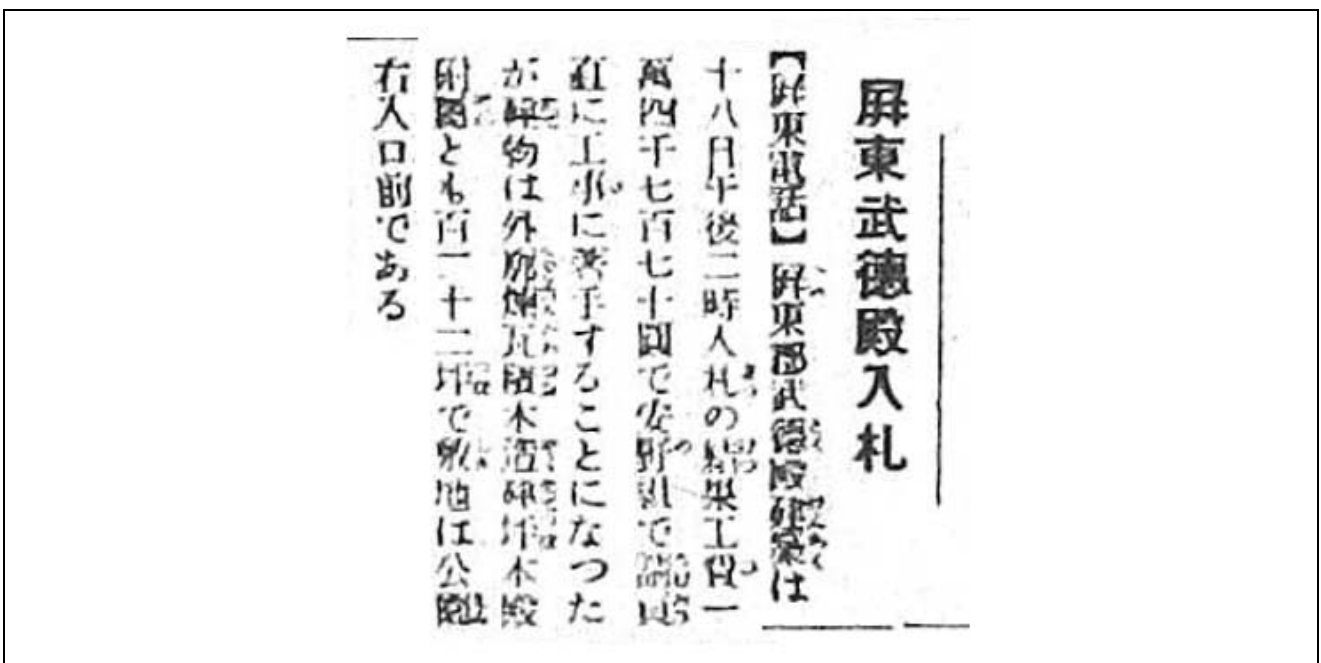 屏東武德殿入札
【屏東電話】屏東郡武德殿建築は
十八日午後二時入札の結果工費一
萬四千七百七十圓で安野組で請負
直に工事に著手することになつた
が建物は外廓煉瓦積木造建坪本殿
附屬とも百二十二坪で敷地は公園
右入口前である